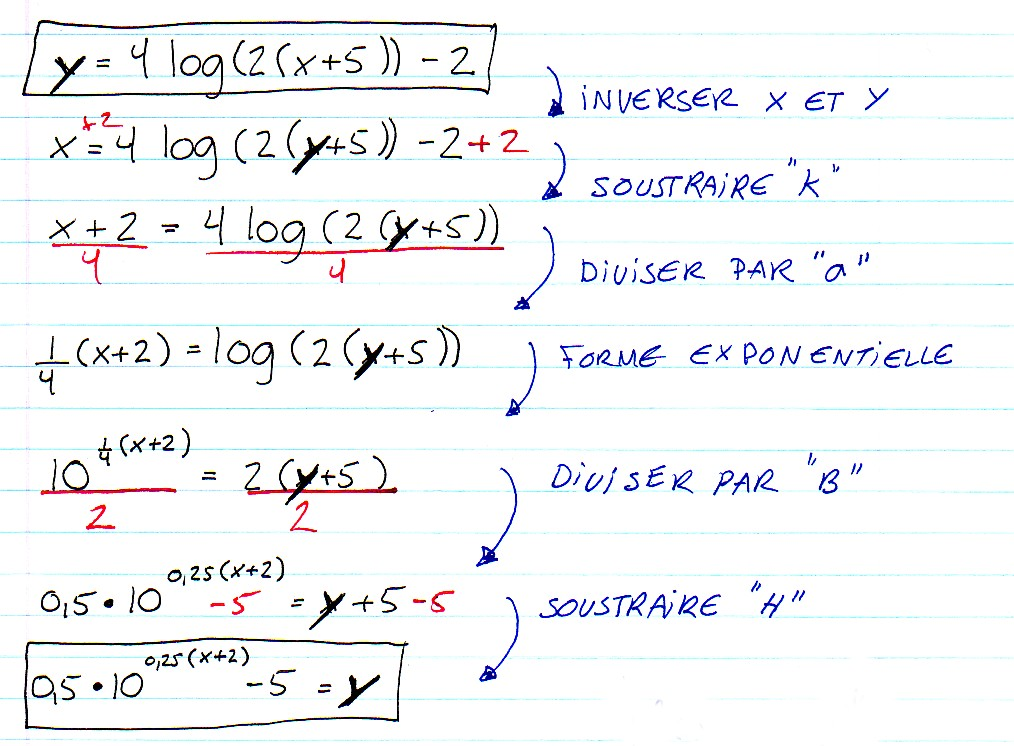 y = 4 log(2(x+5)) - 2
INVERSER X ET Y
x +2 = 4 log(2(y+5)) - 2 + 2
SOUSTRAIRE "K"
x + 2 / 4 = 4 log(2(y+5)) / 4
DIVISER PAR "a"
1/4 (x+2) = log(2(y+5))
FORME EXPONENTIELLE
10^(1/4 (x+2)) / 2 = 2(y+5) / 2
DIVISER PAR "B"
0,5 • 10^(0,25(x+2)) - 5 = y + 5 - 5
SOUSTRAIRE "H"
0,5 • 10^(0,25(x+2)) - 5 = y